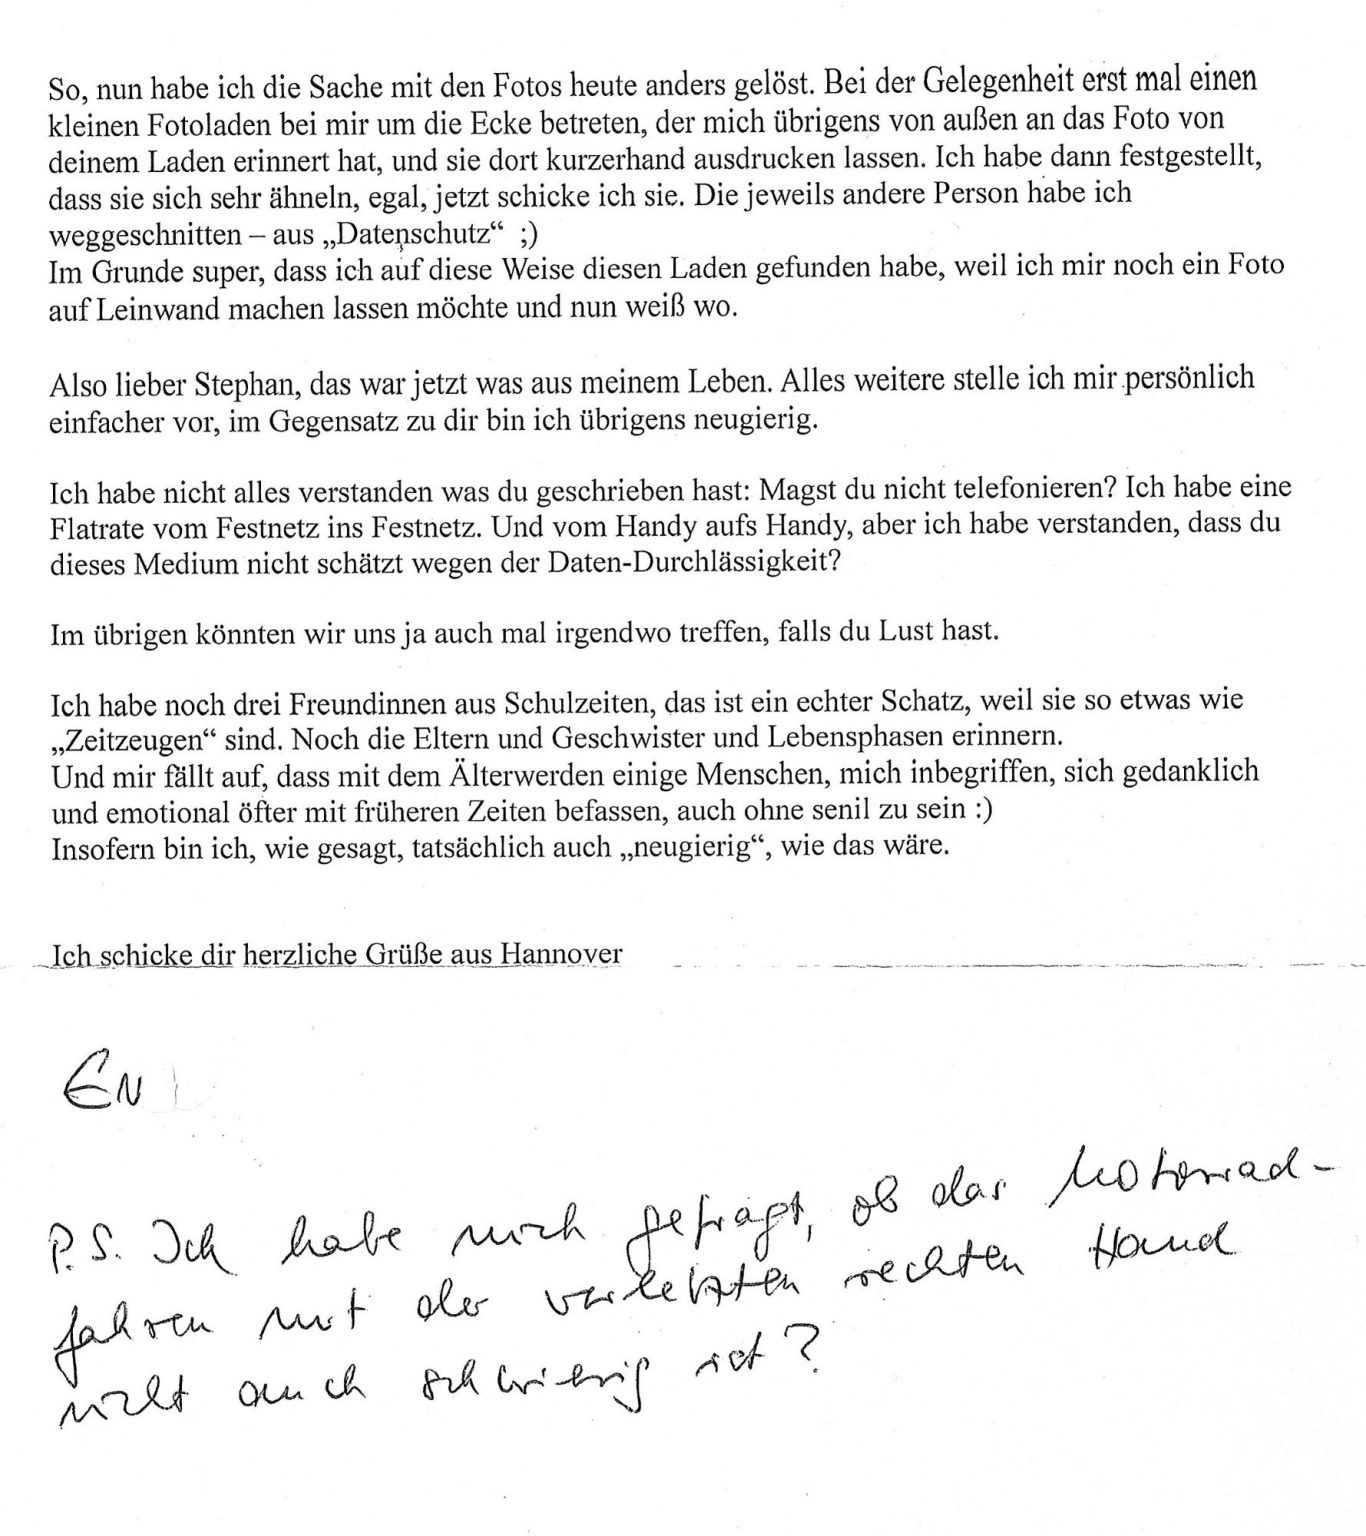 So, nun habe ich die Sache mit den Fotos heute anders gelöst. Bei der Gelegenheit erst mal einen
kleinen Fotoladen bei mir um die Ecke betreten, der mich übrigens von außen an das Foto von
deinem Laden erinnert hat, und sie dort kurzerhand ausdrucken lassen. Ich habe dann festgestellt,
dass sie sich sehr ähneln, egal, jetzt schicke ich sie. Die jeweils andere Person habe ich
weggeschnitten – aus „Datenschutz“ ;)
Im Grunde super, dass ich auf diese Weise diesen Laden gefunden habe, weil ich mir noch ein Foto
auf Leinwand machen lassen möchte und nun weiß wo.
Also lieber Stephan, das war jetzt was aus meinem Leben. Alles weitere stelle ich mir persönlich
einfacher vor, im Gegensatz zu dir bin ich übrigens neugierig.
Ich habe nicht alles verstanden was du geschrieben hast: Magst du nicht telefonieren? Ich habe eine
Flatrate vom Festnetz ins Festnetz. Und vom Handy aufs Handy, aber ich habe verstanden, dass du
dieses Medium nicht schätzt wegen der Daten-Durchlässigkeit?
Im übrigen könnten wir uns ja auch mal irgendwo treffen, falls du Lust hast.
Ich habe noch drei Freundinnen aus Schulzeiten, das ist ein echter Schatz, weil sie so etwas wie
„Zeitzeugen“ sind. Noch die Eltern und Geschwister und Lebensphasen erinnern.
Und mir fällt auf, dass mit dem Älterwerden einige Menschen, mich inbegriffen, sich gedanklich
und emotional öfter mit früheren Zeiten befassen, auch ohne senil zu sein :)
Insofern bin ich, wie gesagt, tatsächlich auch „neugierig“, wie das wäre.
Ich schicke dir herzliche Grüße aus Hannover
EN
P.S. Ich habe mich gefragt, ob das Motorrad-
fahren mit der verletzten rechten Hand
nicht auch schwierig ist?